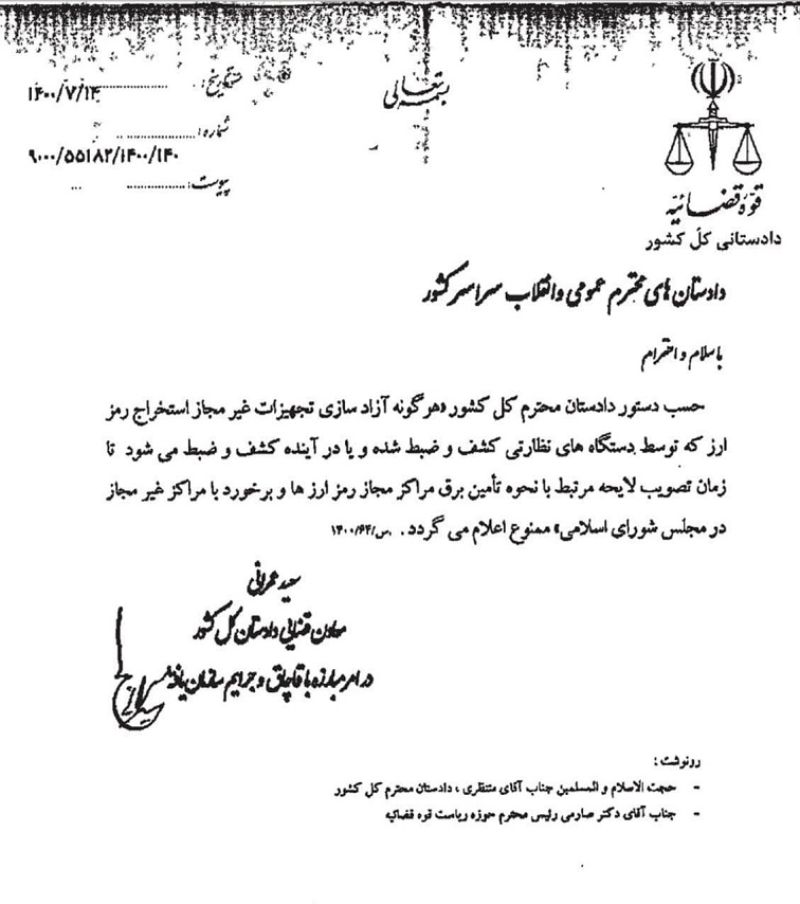 بسمه تعالی
تاریخ: ۱۴۰۰/۷/۱۴
شماره:
۹۰۰۰/۵۵۱۸۲/۱۴۰۰/۱۴۰
پیوست:
قوّه قضـائیّه
دادستانی کل کشور
دادستان های محترم عمومی و انقلاب سراسر کشور
با سلام و احترام
حسب دستور دادستان محترم کل کشور «هرگونه آزاد سازی تجهیزات غیر مجاز استخراج رمز
ارز که توسط دستگاه های نظارتی کشف و ضبط شده و یا در آینده کشف و ضبط می شود تا
زمان تصویب لایحه مرتبط با نحوه تأمین برق مراکز مجاز رمز ارز ها و برخورد با مراکز غیر مجاز
در مجلس شورای اسلامی» ممنوع اعلام می گردد. س/۱۴۰۰/۶۴
سعید عمرانی
معاون قضایی دادستان کل کشور
در امر مبارزه با قاچاق و جرایم سازمان یافته
رونوشت:
- حجت الاسلام و المسلمین جناب آقای منتظری ، دادستان محترم کل کشور
- جناب آقای دکتر صارمی رئیس محترم حوزه ریاست قوه قضائیه